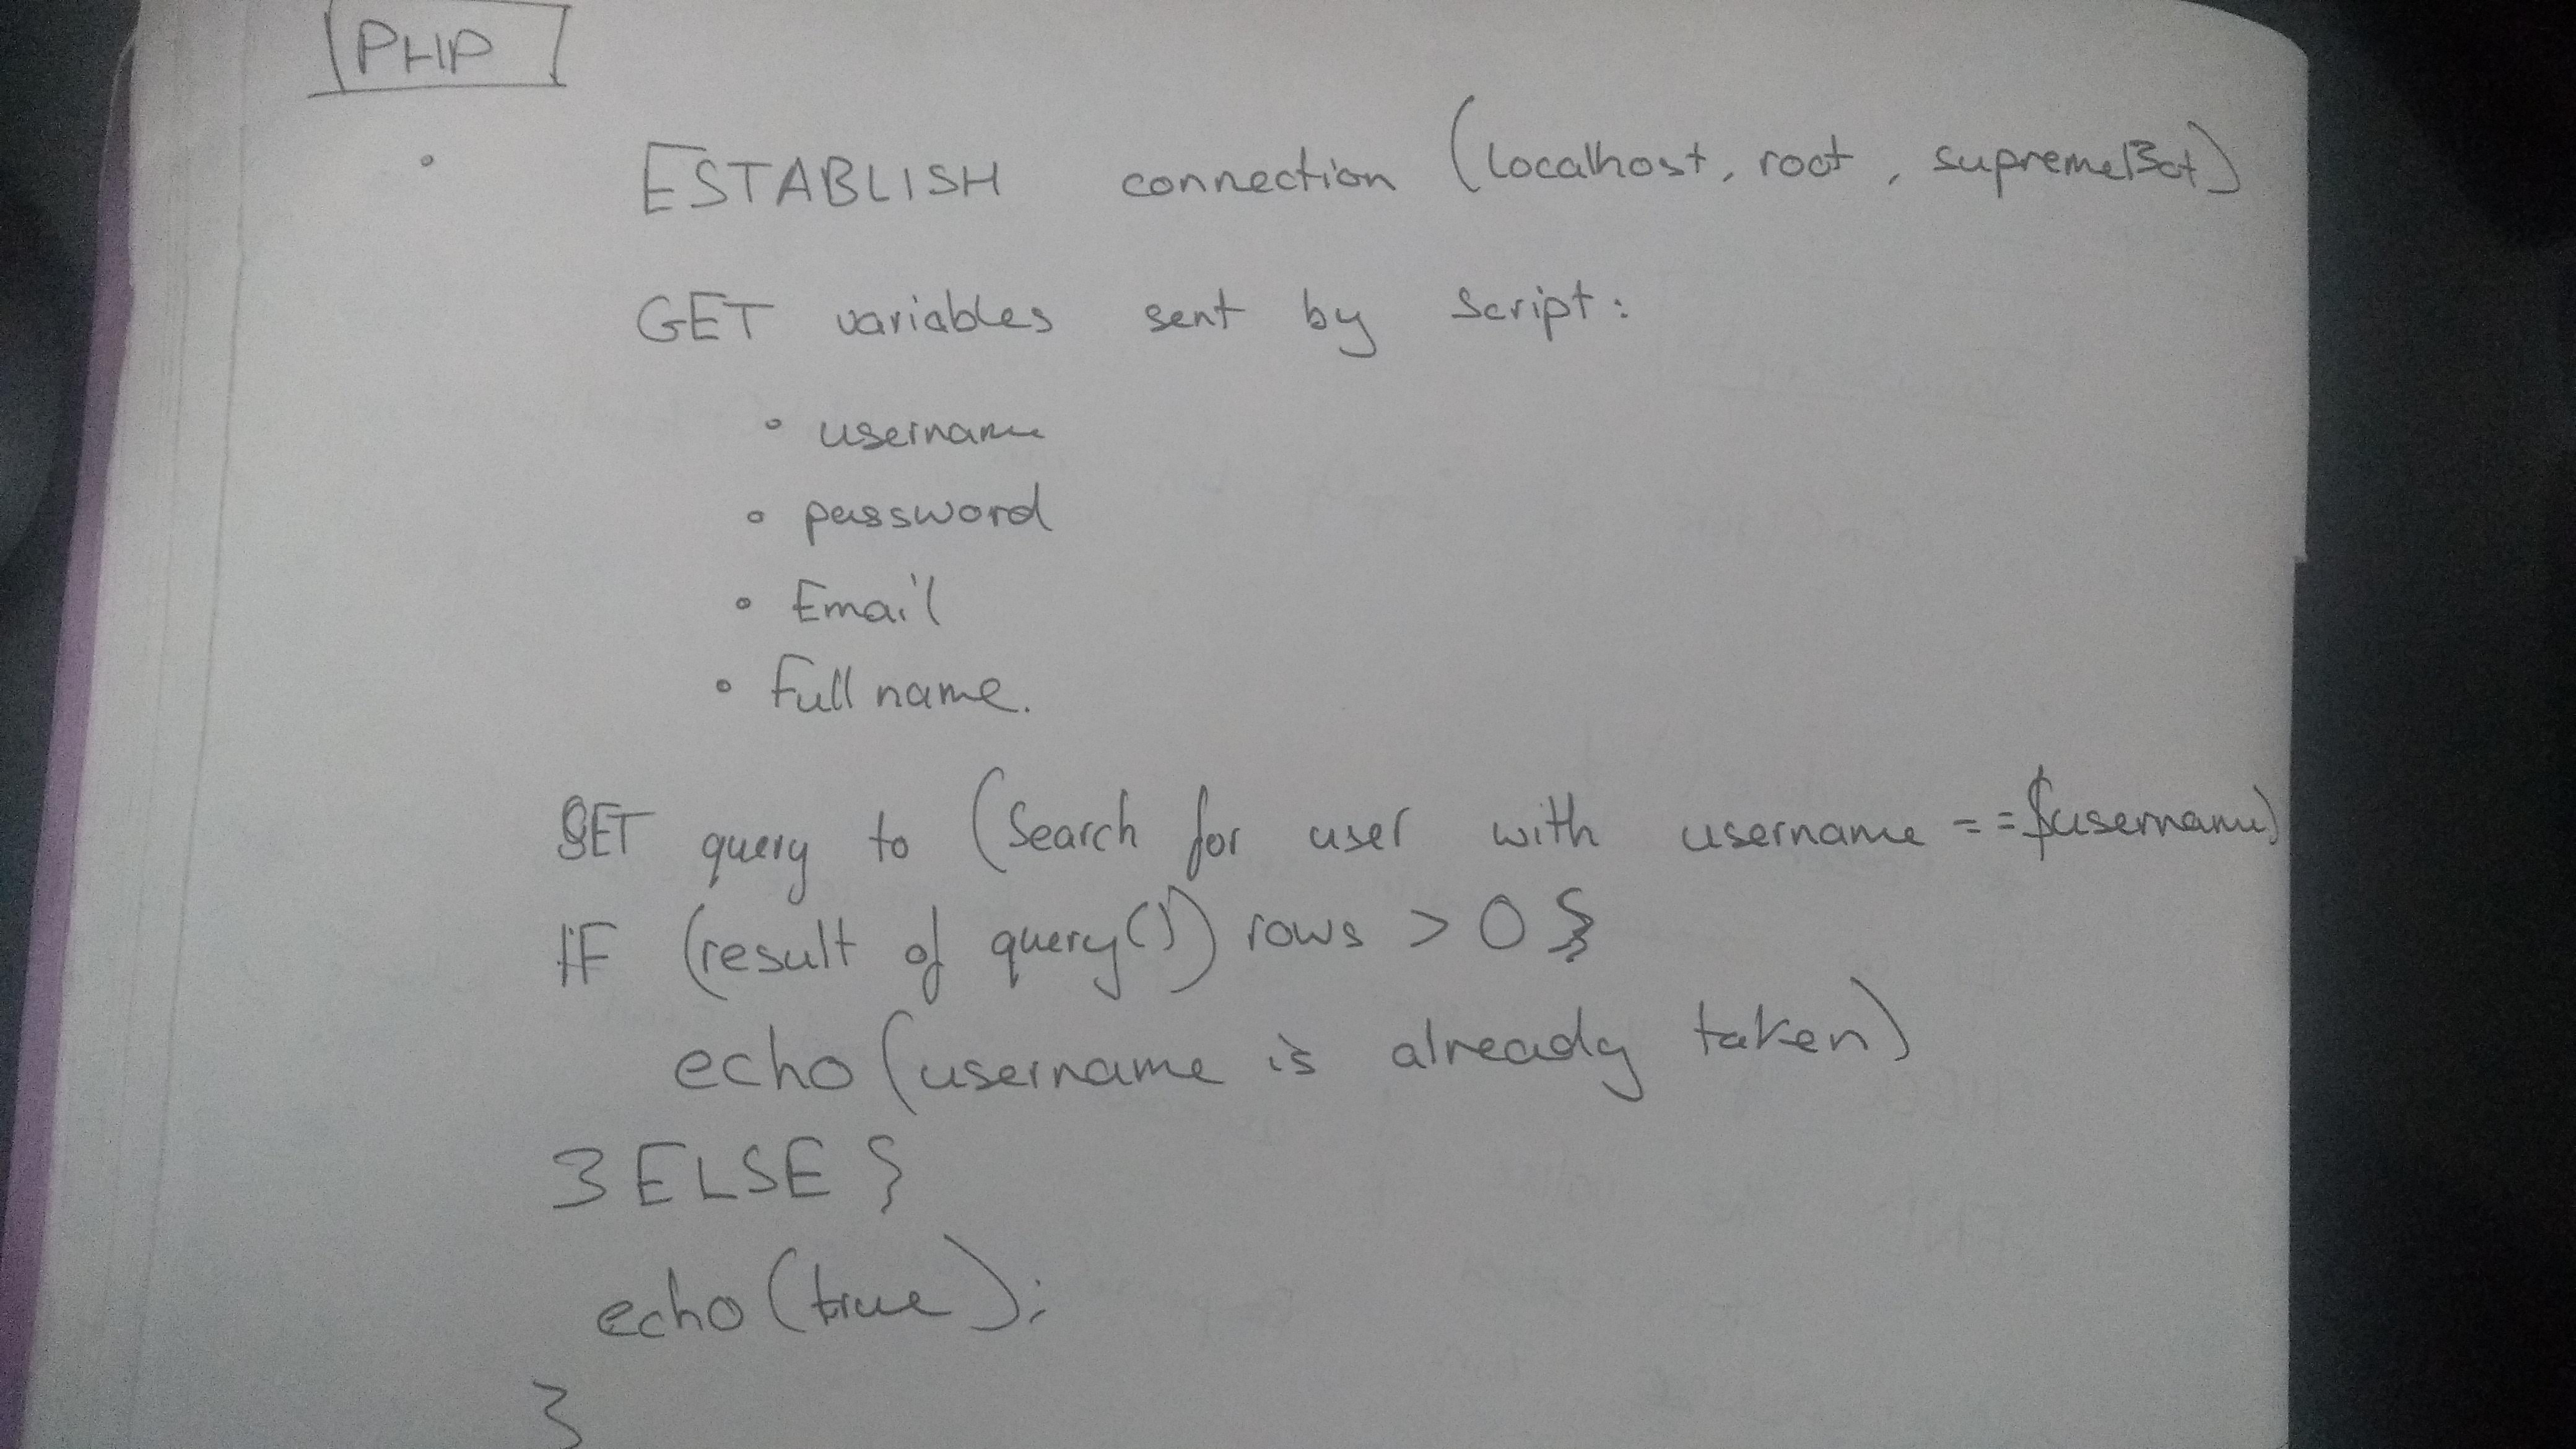 PHP
• ESTABLISH connection (localhost, root, supremeBot)
GET variables sent by Script:
• username
• password
• Email
• Full name.
SET query to (Search for user with username == $username)
IF (result of query()) rows > 0 {
echo (username is already taken)
} ELSE {
echo (true);
}